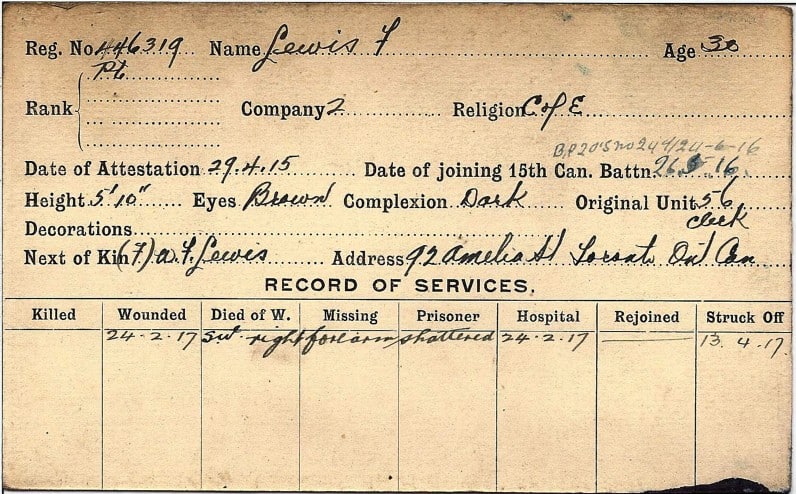 Reg. No. 446319 Name Lewis F Age 30
Pt.
Rank Company 2 Religion C of E
B.P20'S no 244/24-6-16
Date of Attestation 29.4.15 Date of joining 15th Can. Battn. 26.5.16.
Height 5'10" Eyes Brown Complexion Dark Original Unit 56
Decorations clerk
Next of Kin (F) a. F. Lewis Address 92 Amelia St Toronto Ont Can
RECORD OF SERVICES.
Killed Wounded Died of W. Missing Prisoner Hospital Rejoined Struck Off
24-2-17 SW right forearm shattered 24-2-17 13.4.17.